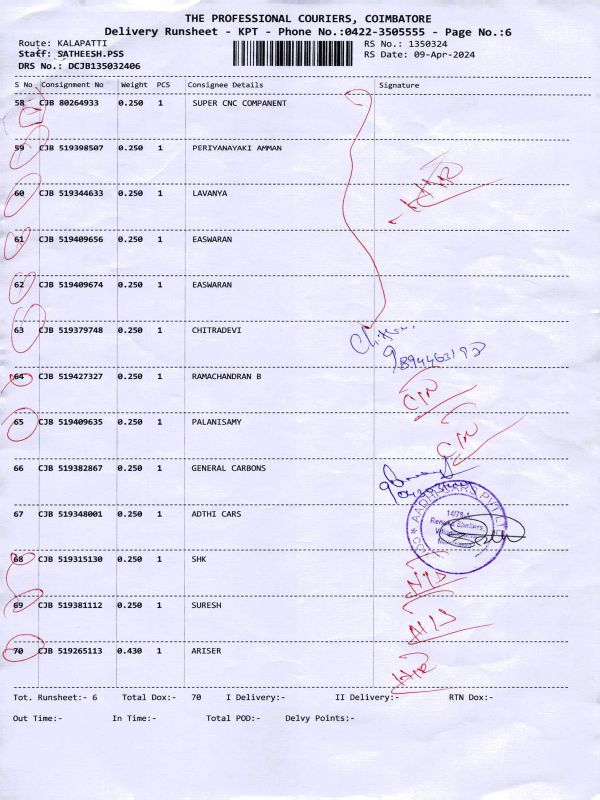 THE PROFESSIONAL COURIERS, COIMBATORE
Delivery Runsheet - KPT - Phone No.:0422-3505555 - Page No.:6
Route: KALAPATTI RS No.: 1350324
Staff: SATHEESH.PSS RS Date: 09-Apr-2024
DRS No.: DCJB135032406
S No Consignment No Weight PCS Consignee Details Signature
58 CJB 80264933 0.250 1 SUPER CNC COMPANENT
59 CJB 519398507 0.250 1 PERIYANAYAKI AMMAN
60 CJB 519344633 0.250 1 LAVANYA
61 CJB 519409656 0.250 1 EASWARAN
62 CJB 519409674 0.250 1 EASWARAN
63 CJB 519379748 0.250 1 CHITRADEVI
64 CJB 519427327 0.250 1 RAMACHANDRAN B
65 CJB 519409635 0.250 1 PALANISAMY
66 CJB 519382867 0.250 1 GENERAL CARBONS
67 CJB 519348001 0.250 1 ADTHI CARS
68 CJB 519315130 0.250 1 SHK
69 CJB 519381112 0.250 1 SURESH
70 CJB 519265113 0.430 1 ARISER
Tot. Runsheet:- 6 Total Dox:- 70 I Delivery:- II Delivery:- RTN Dox:-
Out Time:- In Time:- Total POD:- Delvy Points:-